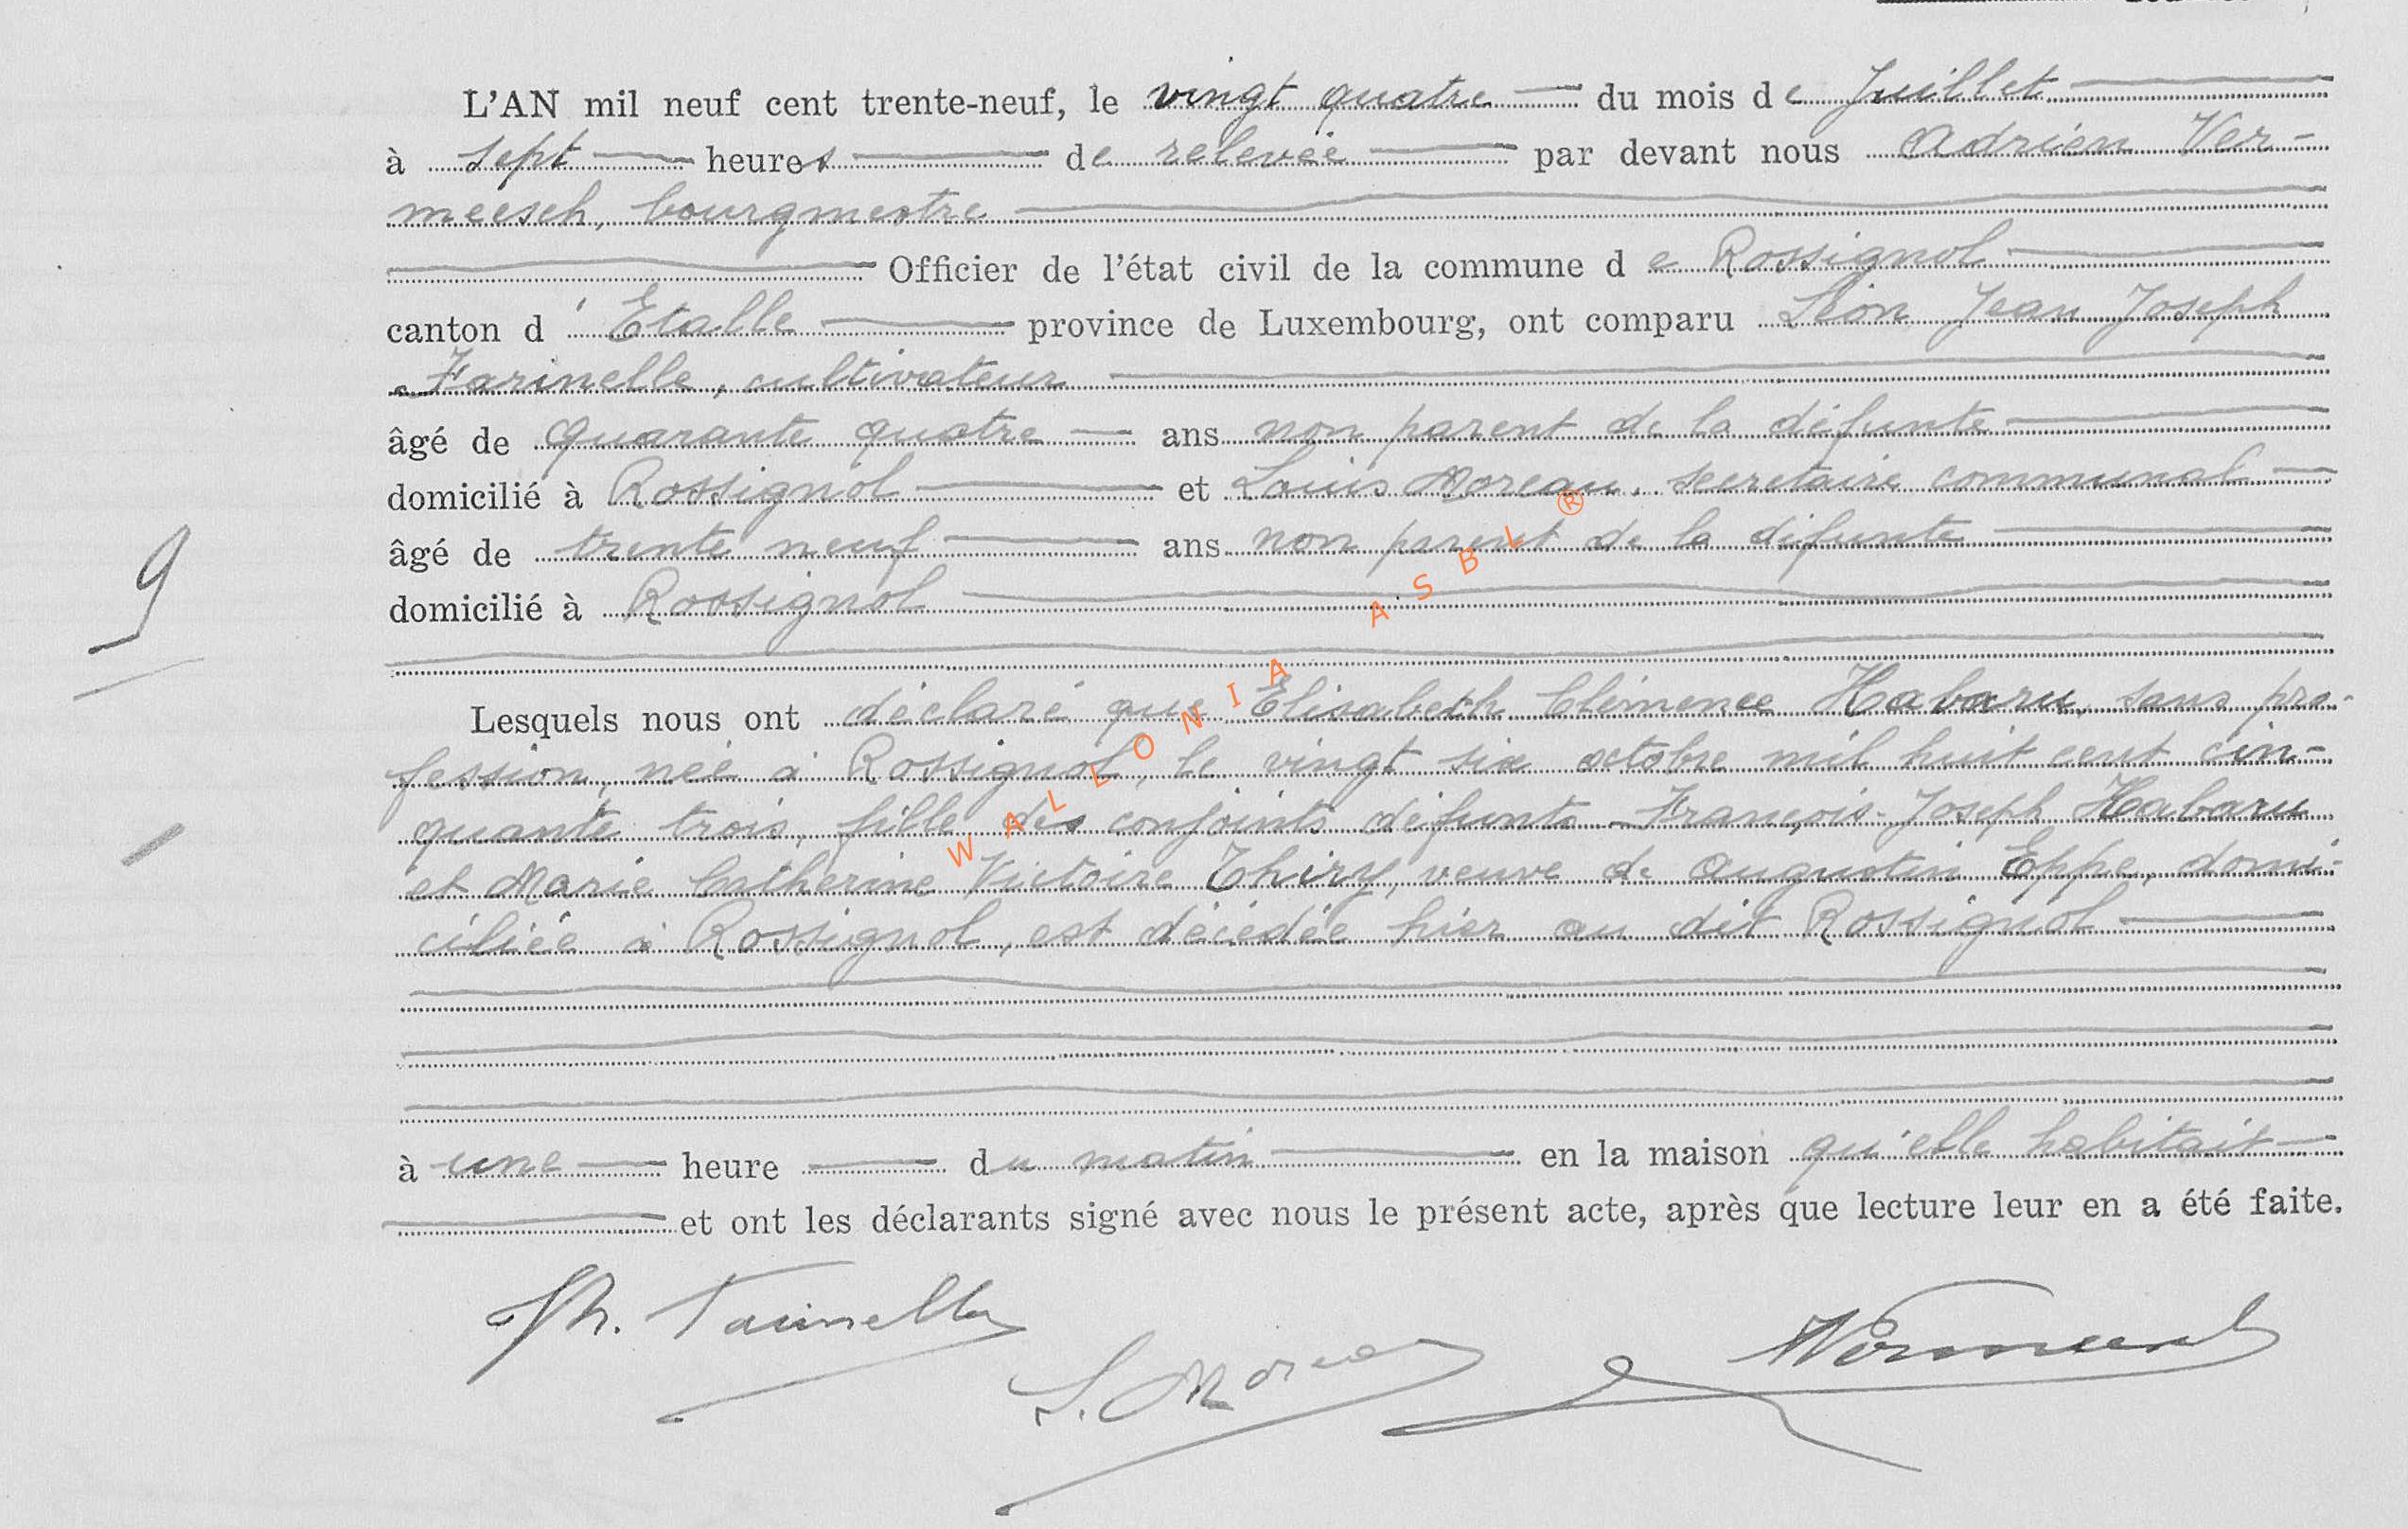 L'AN mil neuf cent trente-neuf, le vingt quatre du mois de Juillet
à sept heures de relevée par devant nous Adrien Ver-
meesch, bourgmestre
Officier de l'état civil de la commune de Rossignol
canton d'Etalle province de Luxembourg, ont comparu Léon Jean Joseph
Farinelle, cultivateur
âgé de quarante quatre ans non parent de la défunte
domicilié à Rossignol et Louis Moreau, secrétaire communal
âgé de trente neuf ans non parent de la défunte
domicilié à Rossignol
9
Lesquels nous ont déclaré que Elisabeth Clémence Habaru, sans pro-
fession, née à Rossignol, le vingt six octobre mil huit cent cin-
quante trois, fille des conjoints défunts François-Joseph Habaru
et Marie Catherine Victoire Thiry, veuve de Augustin Eppe, domi-
ciliée à Rossignol, est décédée hier au dit Rossignol
à une heure du matin en la maison qu'elle habitait
et ont les déclarants signé avec nous le présent acte, après que lecture leur en a été faite.
Farinelle
L. Moreau
WALLONIA ASBL ®